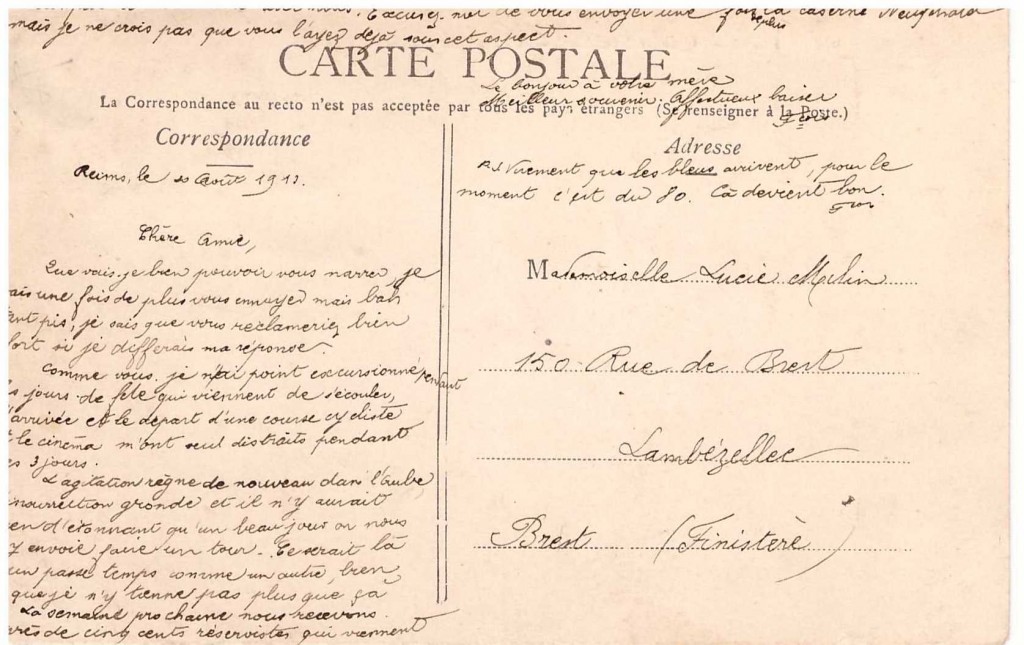 avec nous. Excusez-moi de vous envoyer une fois de plus la caserne Neufchâtel
mais je ne crois pas que vous l'ayez déjà sous cet aspect.
CARTE POSTALE
Le bonjour à votre mère
Meilleur souvenir. Affectueux baiser
La Correspondance au recto n'est pas acceptée par tous les pays étrangers (Se renseigner à la Poste.)
Correspondance
Reims, le Août 191
Chère Amie,
Que vais-je bien pouvoir vous narrer, je
vais une fois de plus vous ennuyer mais bah
tant pis, je sais que vous réclameriez bien
fort si je différais ma réponse.
Comme vous je n'ai point excursionné pendant
les jours de fête qui viennent de s'écouler,
l'arrivée et le départ d'une course cycliste
et le cinéma m'ont seul distraits pendant
ces 3 jours.
L'agitation règne de nouveau dans l'Aube,
insurrection gronde et il n'y aurait
rien d'étonnant qu'un beau jour on nous
y envoie faire un tour. Ce serait là
un passe temps comme un autre, bien
que je n'y tienne pas plus que ça
La semaine prochaine nous recevons
près de cinq cents réservistes qui viennent
Adresse
P.S. Vivement que les bleus arrivent, pour le
moment c'est du 80. Cà devient bon.
Mademoiselle Lucie Malin
150 Rue de Brest
Lambézellec
Brest (Finistère)